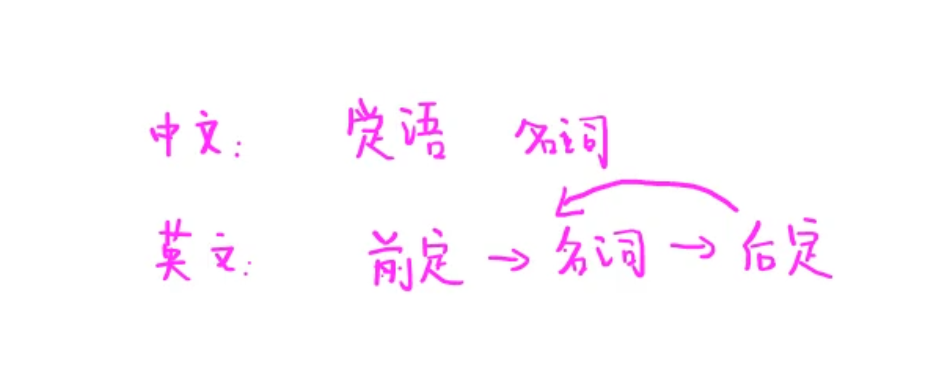 中文: 定语 名词
英文: 前定 → 名词 → 后定